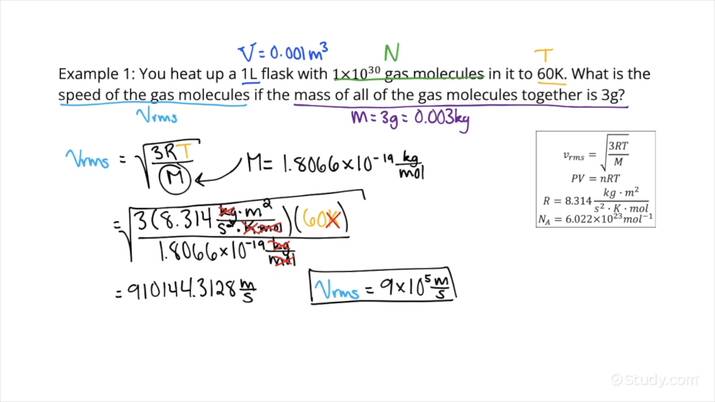 V = 0.001m³ N T
Example 1: You heat up a 1L flask with 1×10³⁰ gas molecules in it to 60K. What is the
speed of the gas molecules if the mass of all of the gas molecules together is 3g?
Vrms m = 3g = 0.003kg
Vrms = √(3RT/M) M = 1.8066×10⁻¹⁹ kg/mol
= √(3(8.314 kg·m²/s²·K·mol)(60K)/1.8066×10⁻¹⁹ kg/mol)
= 910144.3128 m/s Vrms = 9×10⁵ m/s
vrms = √(3RT/M)
PV = nRT
R = 8.314 kg·m²/s²·K·mol
N_A = 6.022×10²³mol⁻¹
©Study.com